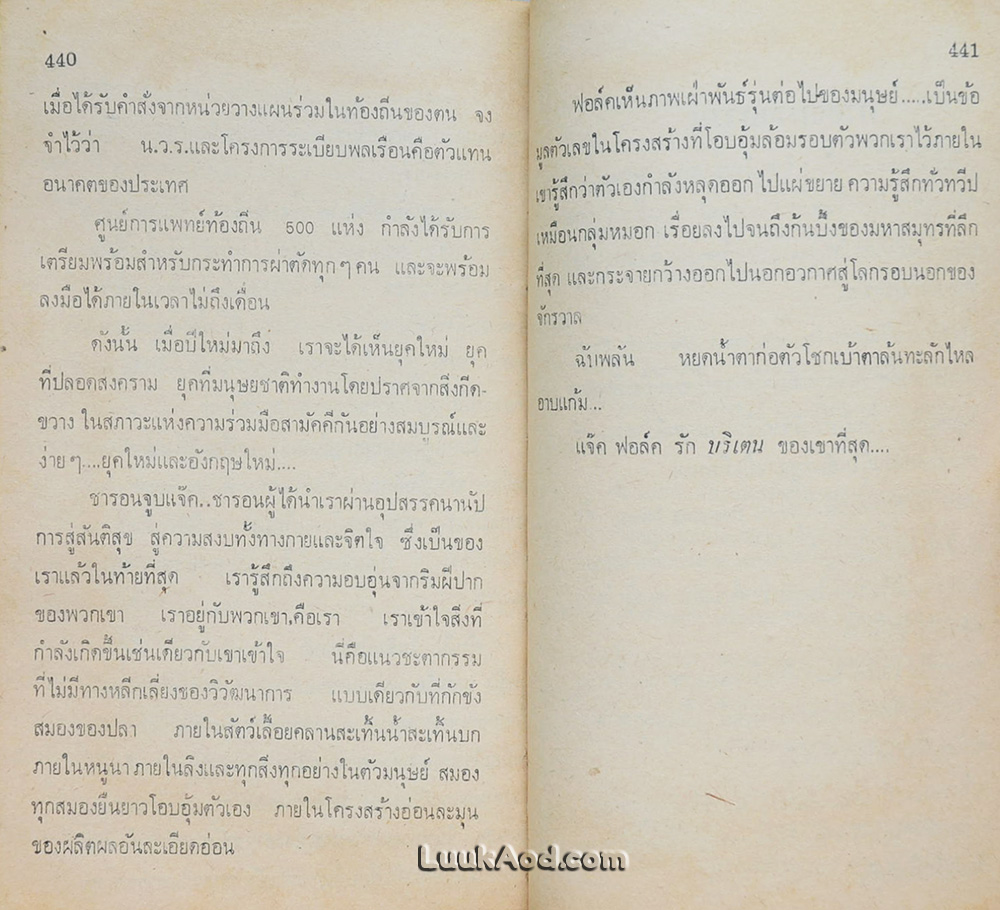 440
เมื่อได้รับคำสั่งจากหน่วยวางแผนร่วมในท้องถิ่นของตน จง
จำไว้ว่า น.ว.ร.และโครงการระเบียบพลเรือนคือตัวแทน
อนาคตของประเทศ
ศูนย์การแพทย์ท้องถิ่น 500 แห่ง กำลังได้รับการ
เตรียมพร้อมสำหรับกระทำการผ่าตัดทุกๆคน และจะพร้อม
ลงมือได้ภายในเวลาไม่ถึงเดือน
ดังนั้น เมื่อปีใหม่มาถึง เราจะได้เห็นยุคใหม่ ยุค
ที่ปลอดสงคราม ยุคที่มนุษยชาติทำงานโดยปราศจากสิ่งกีด-
ขวาง ในสภาวะแห่งความร่วมมือสามัคคีกันอย่างสมบูรณ์และ
ง่ายๆ....ยุคใหม่และอังกฤษใหม่....
ชารอนจูบแจ๊ค..ชารอนผู้ได้นำเราผ่านอุปสรรคนานัป
การสู่สันติสุข สู่ความสงบทั้งทางกายและจิตใจ ซึ่งเป็นของ
เราแล้วในท้ายที่สุด เรารู้สึกถึงความอบอุ่นจากริมฝีปาก
ของพวกเขา เราอยู่กับพวกเขา,คือเรา เราเข้าใจสิ่งที่
กำลังเกิดขึ้นเช่นเดียวกับเขาเข้าใจ นี่คือแนวชะตากรรม
ที่ไม่มีทางหลีกเลี่ยงของวิวัฒนาการ แบบเดียวกับที่กักขัง
สมองของปลา ภายในสัตว์เลื้อยคลานสะเทิ้นน้ำสะเทิ้นบก
ภายในหนูนา ภายในลิงและทุกสิ่งทุกอย่างในตัวมนุษย์ สมอง
ทุกสมองยืนยาวโอบอุ้มตัวเอง ภายในโครงสร้างอ่อนละมุน
ของผลิตผลอันละเอียดอ่อน
441
ฟอล์คเห็นภาพเผ่าพันธ์รุ่นต่อไปของมนุษย์.....เป็นข้อ
มูลตัวเลขในโครงสร้างที่โอบอุ้มล้อมรอบตัวพวกเราไว้ภายใน
เขารู้สึกว่าตัวเองกำลังหลุดออก ไปแผ่ขยาย ความรู้สึกทั่วทวีป
เหมือนกลุ่มหมอก เรื่อยลงไปจนถึงก้นบึ้งของมหาสมุทรที่ลึก
ที่สุด และกระจายกว้างออกไปนอกอวกาศสู่โลกรอบนอกของ
จักรวาล
ฉับพลัน หยดน้ำตาก่อตัวโชกเบ้าตาล้นทะลักไหล
อาบแก้ม...
แจ๊ค ฟอล์ค รัก บริเตน ของเขาที่สุด....
LuukAod.com